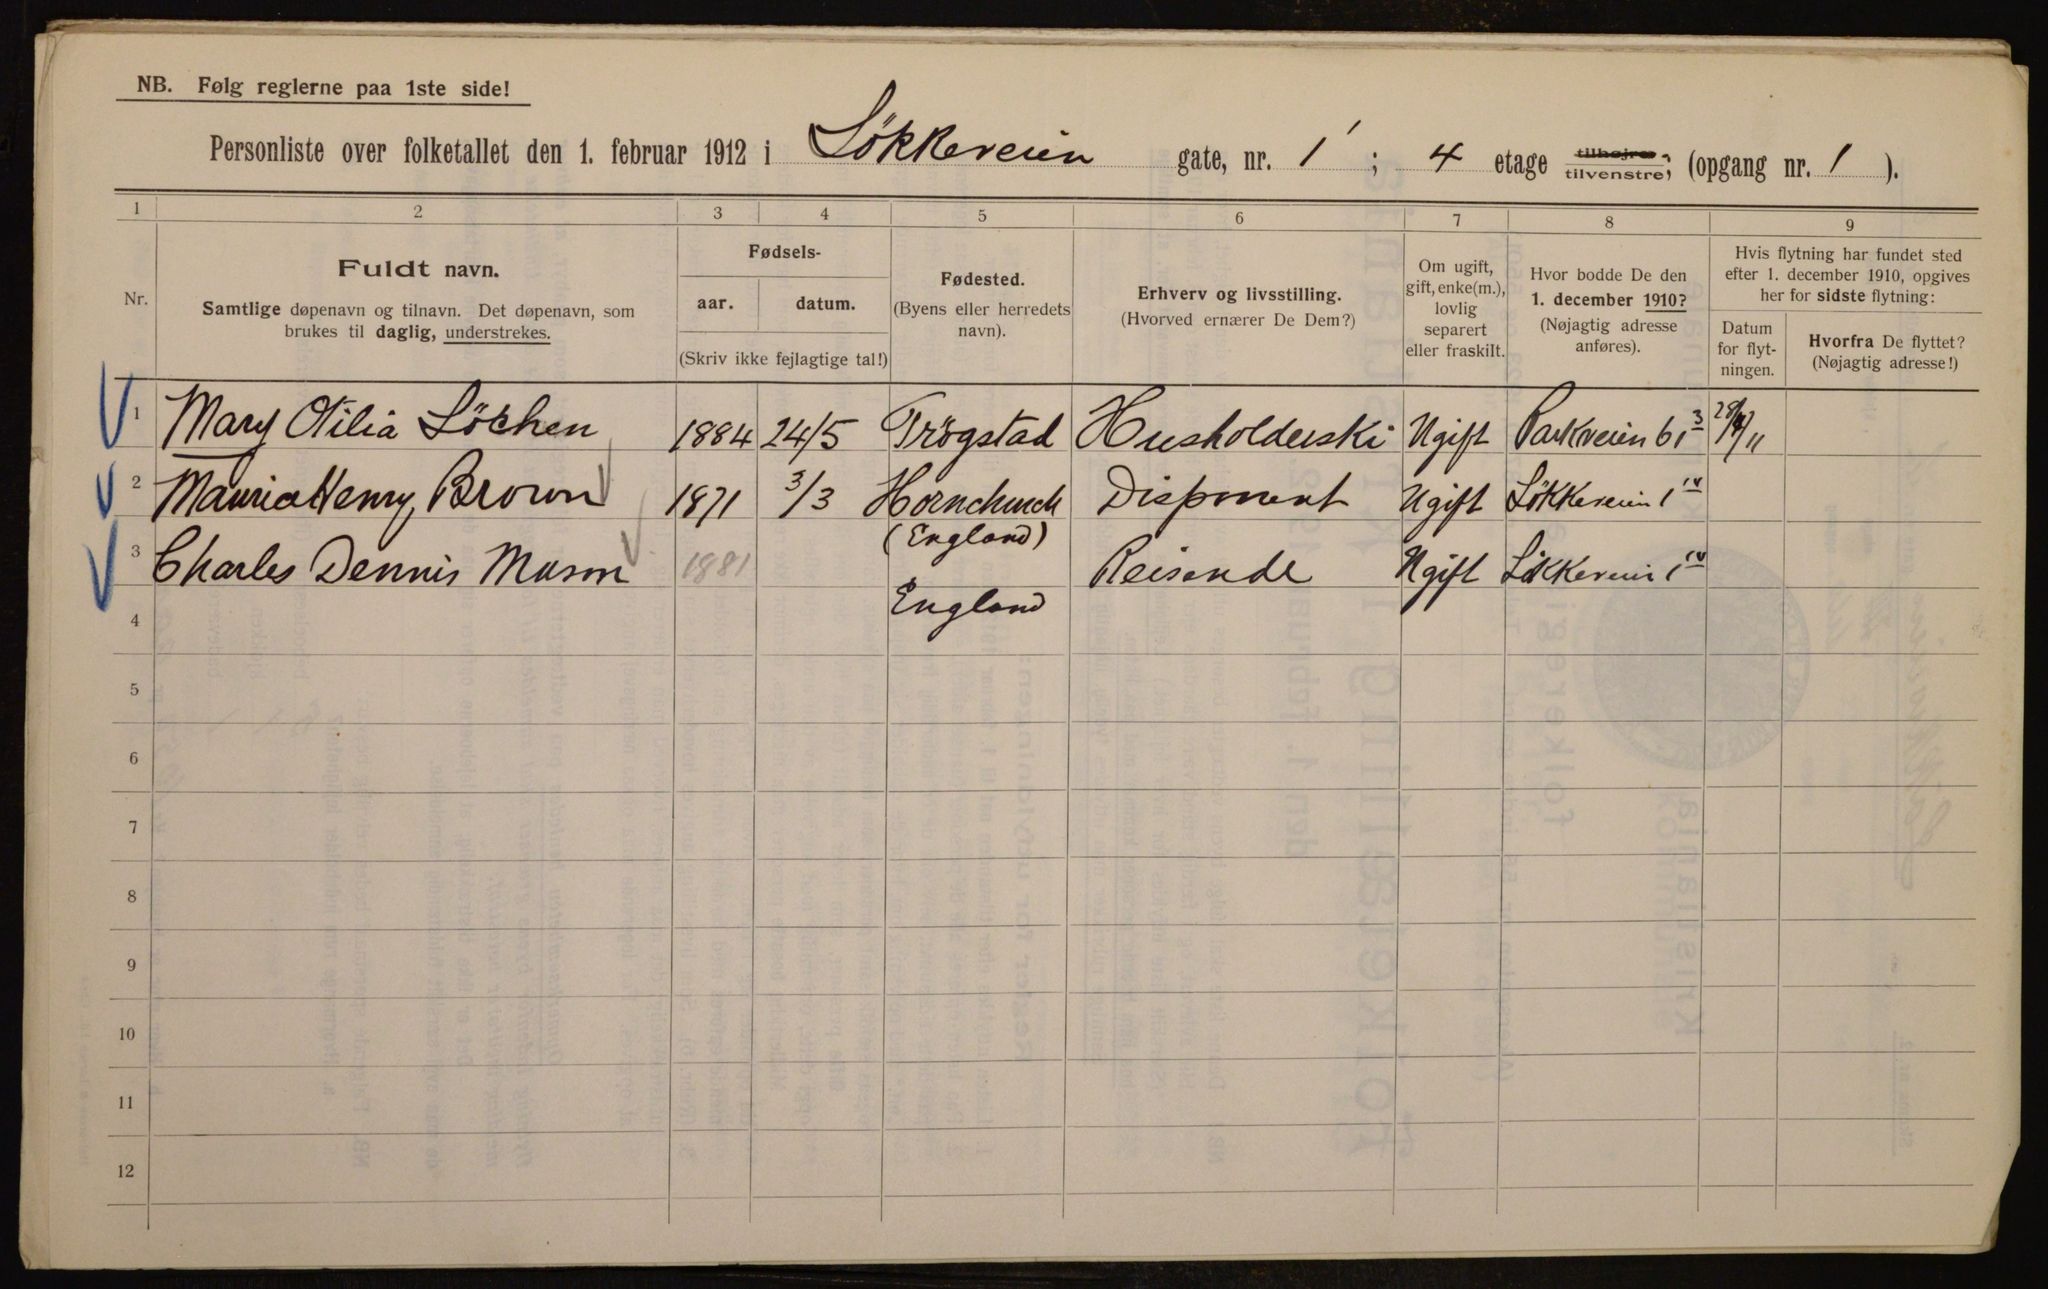 NB. Følg reglerne paa 1ste side!
Personliste over folketallet den 1. februar 1912 i Løkkeveien gate, nr. 1 ; 4 etage tilhøjre tilvenstre; (opgang nr. 1 ).
1 2 3 4 5 6 7 8 9
Nr.
Fuldt navn.
Samtlige døpenavn og tilnavn. Det døpenavn, som
brukes til daglig, understrekes.
Fødsels-
aar. datum.
(Skriv ikke fejlagtige tal!)
Fødested.
(Byens eller herredets
navn).
Erhverv og livsstilling.
(Hvorved ernærer De Dem?)
Om ugift,
gift, enke(m.),
lovlig
separert
eller fraskilt.
Hvor bodde De den
1. december 1910?
(Nøjagtig adresse
anføres).
Hvis flytning har fundet sted
efter 1. december 1910, opgives
her for sidste flytning:
Datum
for flyt-
ningen.
Hvorfra De flyttet?
(Nøjagtig adresse!)
1 Mary Otilia Löchen 1884 24/5 Trøgstad Husholderski Ugift Parkveien 61 3
2 Henry Brown 1871 3/3 Hornchurch Disponent Ugift Løkkeveien 1 IV
(England)
3 Charles Dennis Mason 1881 Reisende Ugift Løkkeveien 1 IV
England
4
5
6
7
8
9
10
11
12